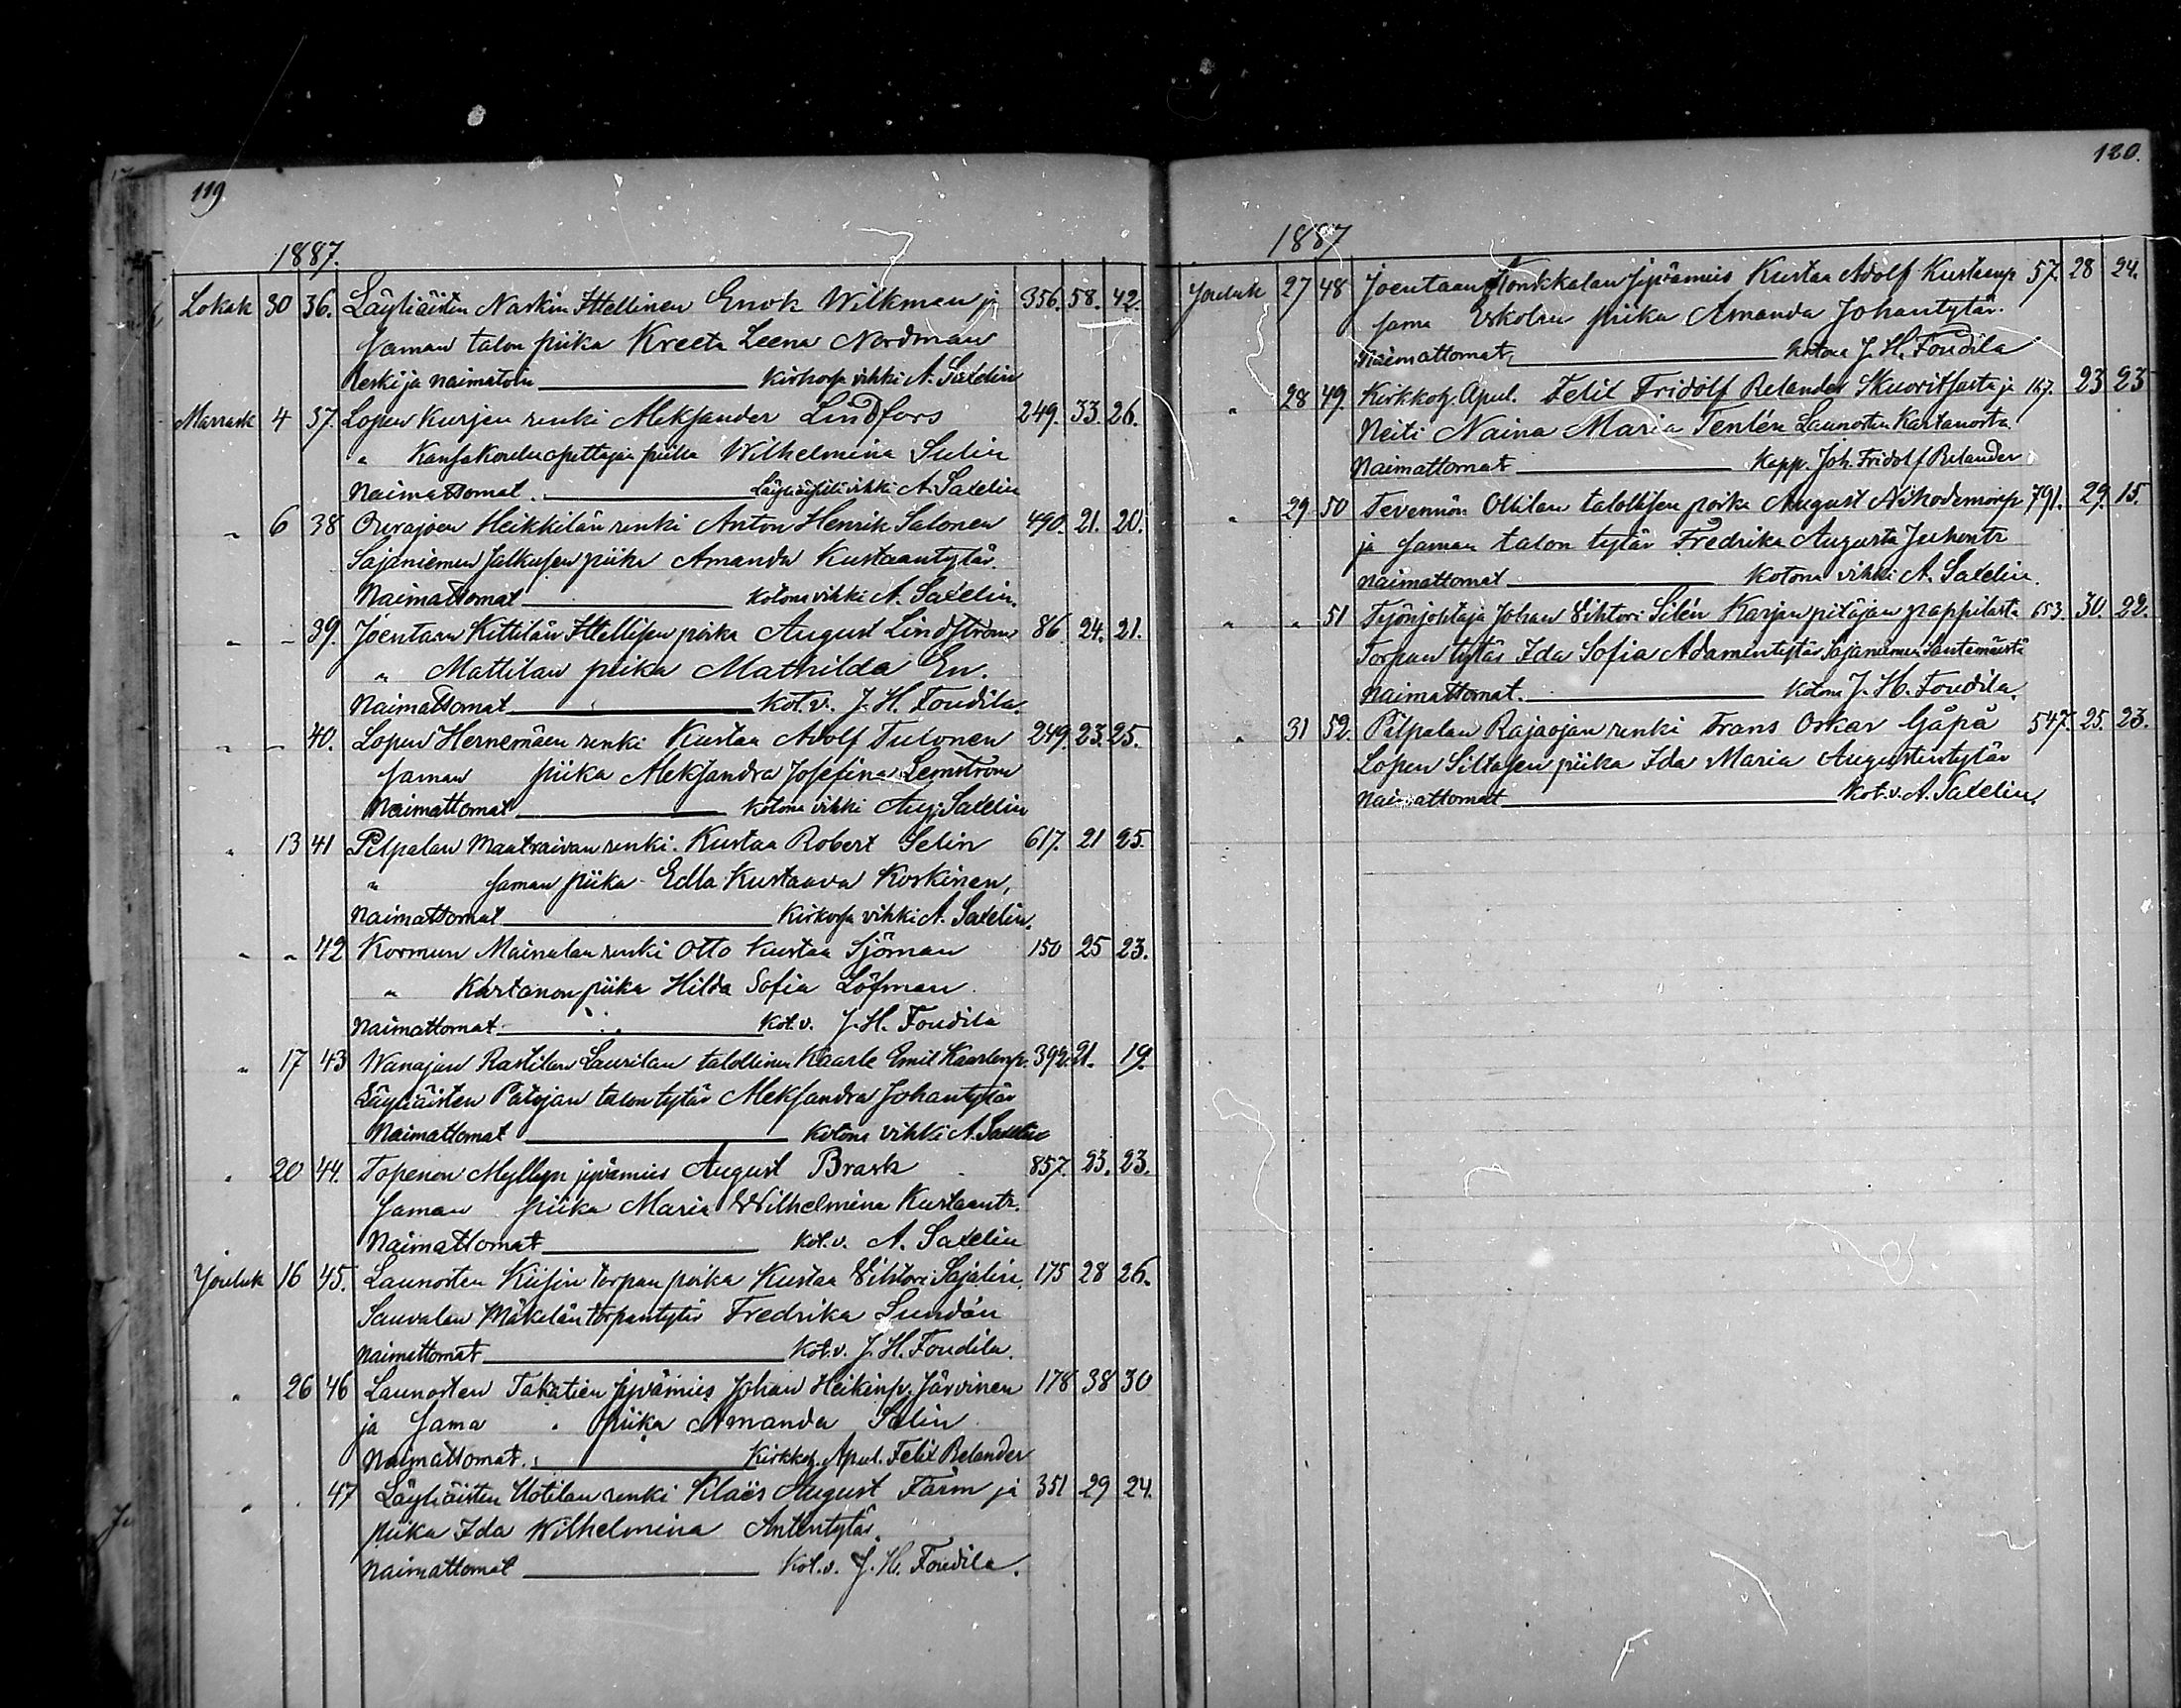 119.
1887.
Lokak 30 36. Läyliäisten Naskin Itsellinen Enok Wilkman ja 356. 58. 42.
saman talon piika Kreeta Leena Nordman
Leski ja naimatoin kirkossa vihki A. Saxelin
Marrask 4 37. Lopen Kurjen renki Aleksander Lindfors 249. 33. 26.
" Kansakouluopettajan piika Wilhelmina Sulin
Naimattomat. Läyliäisissä vihki A. Saxelin
" 6 38 Ourajoen Heikkilän renki Anton Henrik Salonen 490. 21. 20.
Sajaniemen Jalkusen piika Amanda Kustaantytär.
Naimattomat kotona vihki A. Saxelin.
" " 39. Joentaan Kittilän Itsellisen poika August Lindström 86. 24. 21.
" Mattilan piika Mathilda En.
Naimattomat kot. v. J. H. Foudila.
" " 40. Lopen Hernemäen renki Kustaa Adolf Tulonen 249. 23. 25.
saman piika Aleksandra Josefina Lemström
Naimattomat kotona vihki Aug. Saxelin
" 13 41 Pilpalan Maatraivan renki Kustaa Robert Selin 617. 21 25.
" saman piika Edla Kustaava Koskinen,
Naimattomat Kirkossa vihki A. Saxelin.
" " 42 Kormun Mainalan renki Otto Kustaa Sjöman 150 25 23.
" Kartanon piika Hilda Sofia Löfman
Naimattomat kot. v. J. H. Foudila
" 17 43 Wanajan Rastilan Laurilan talollinen Kaarle Emil Kaarlenp. 392. 21. 19.
Läyliäisten Patojan talon tytär Aleksandra Johantytär
Naimattomat kotona vihki A. Saxelin
" 20 44. Topenon Myllyn jyvämies August Brask 857. 23. 23.
saman piika Maria Wilhelmina Kustaantr.
Naimattomat kot. v. A. Saxelin
Jouluk 16 45. Launosten Kiisin torpan poika Kustaa Vihtori Sajalin 175 28 26.
Sauvalan Mäkelän torpantytär Fredrika Lundén
Naimattomat kot. v. J. H. Foudila.
" 26 46 Launosten Takatien jyvämies Johan Heikinp. Järvinen 178 38 30
ja sama " piika Amanda Salin
Naimattomat. Kirkkoh. Apul. Felix Relander
" " 47 Läyliäisten Uotilan renki Klaës August Färm ja 351 29 24.
piika Ida Wilhelmina Antintytär.
Naimattomat kot. v. J. H. Foudila.
120.
1887
Jouluk 27 48 Joentaan Konkkalan jyvämies Kustaa Adolf Kustaanp 57. 28 24.
sama Eskolan piika Amanda Johantytär.
Naimattomat, kotona J. H. Foudila
" 28 49. Kirkkoh. Apul. Felix Fridolf Relander Skuoritsasta ja 167. 23 23
Neiti Naina Maria Tenlén Launosten Kartanosta
Naimattomat Kapp. Joh. Fridolf Relander
" 29 50 Tevennön Ollilan talollisen poika August Nikodemonp 791. 29. 15.
ja saman talon tytär Fredrika Augusta Juhontr
Naimattomat Kotona vihki A. Saxelin.
" " 51 Työnjohtaja Johan Vihtori Silén Karjan pitäjän pappilasta 653. 30. 22.
Torpan tytär Ida Sofia Adamintytär Sajaniemen Santamäestä
Naimattomat. kotona J. H. Foudila.
" 31 52. Pilpalan Rajaojan renki Frans Oskar Gåpå 547. 25. 23.
Lopen Siltasen piika Ida Maria Augustintytär
Naimattomat Kot. v. A. Saxelin.